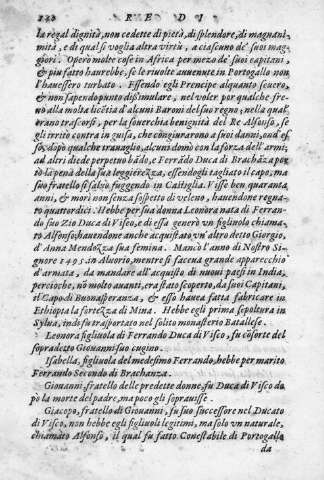 128 RE DI
la regal dignità, non cedette di pietà, di splendore, di magnani
mità, e di qual si voglia altra virtù, a ciascuno de' suoi mag
giori. Operò molte cose in Africa per mezo de' suoi capitani,
& piu fatto haurebbe, se le riuolte auuenute in Portogallo non
l'hauessero turbato. Essendo egli Prencipe alquanto seuero,
& non sapendo punto dissimulare, nel voler por qualche fre-
no alla molta licētia d'alcuni Baroni del suo regno, nella qual'
erano trascorsi, per la souerchia benignità del Re Alfonso, se
gli irritò contra in guisa, che congiurarono a' suoi danni, onde es
so, dopo qualche trauaglio, alcuni domò con la forza dell'armi,
ad altri diede perpetuo bādo, e Ferrādo Duca di Braghāza por
tò la pena della sua leggierezza, essendogli tagliato il capo, ma
suo fratello si saluò fuggendo in Castiglia. Visse ben quaranta
anni, & morì non senza sospetto di veleno, hauendone regna-
to quattordici. Hebbe per sua donna Leonora nata di Ferran-
do suo Zio Duca di Viseo, e di essa generò vn figliuolo chiama-
to Alfonso, hauendone anche acquistato vn'altro detto Giorgio,
d'Anna Mendozza sua femina. Mancò l'anno di Nostro Si-
gnore 1495. in Aluorio, mentre si faceua grande apparecchio
d'armata, da mandare all'acquisto di nuoui paesi in India,
percioche, nō molto auanti, era stato scoperto, da suoi Capitani,
il Capo di Buonasperanza, & esso hauea fatta fabricare in
Ethiopia la fortezza di Mina. Hebbe egli prima sepoltura in
Sylua, indi fu trasportato nel solito monasterio Batallese.
Leonora figliuola di Ferrando Duca di Viseo, fu cōsorte del
sopradetto Giouanni suo cugino.
Isabella, figliuola del medesimo Ferrando, hebbe per marito
Ferrando Secondo di Brachanza.
Giouanni, fratello delle predette donne, fu Duca di Viseo do
pò la morte del padre, ma poco gli soprauisse.
Giacopo, fratello di Giouanni, fu suo successore nel Ducato
di Viseo, non hebbe egli figliuoli legitimi, ma solo vn naturale,
chiamato Alfonso, il qual fu fatto Conestabile di Portogallo
da